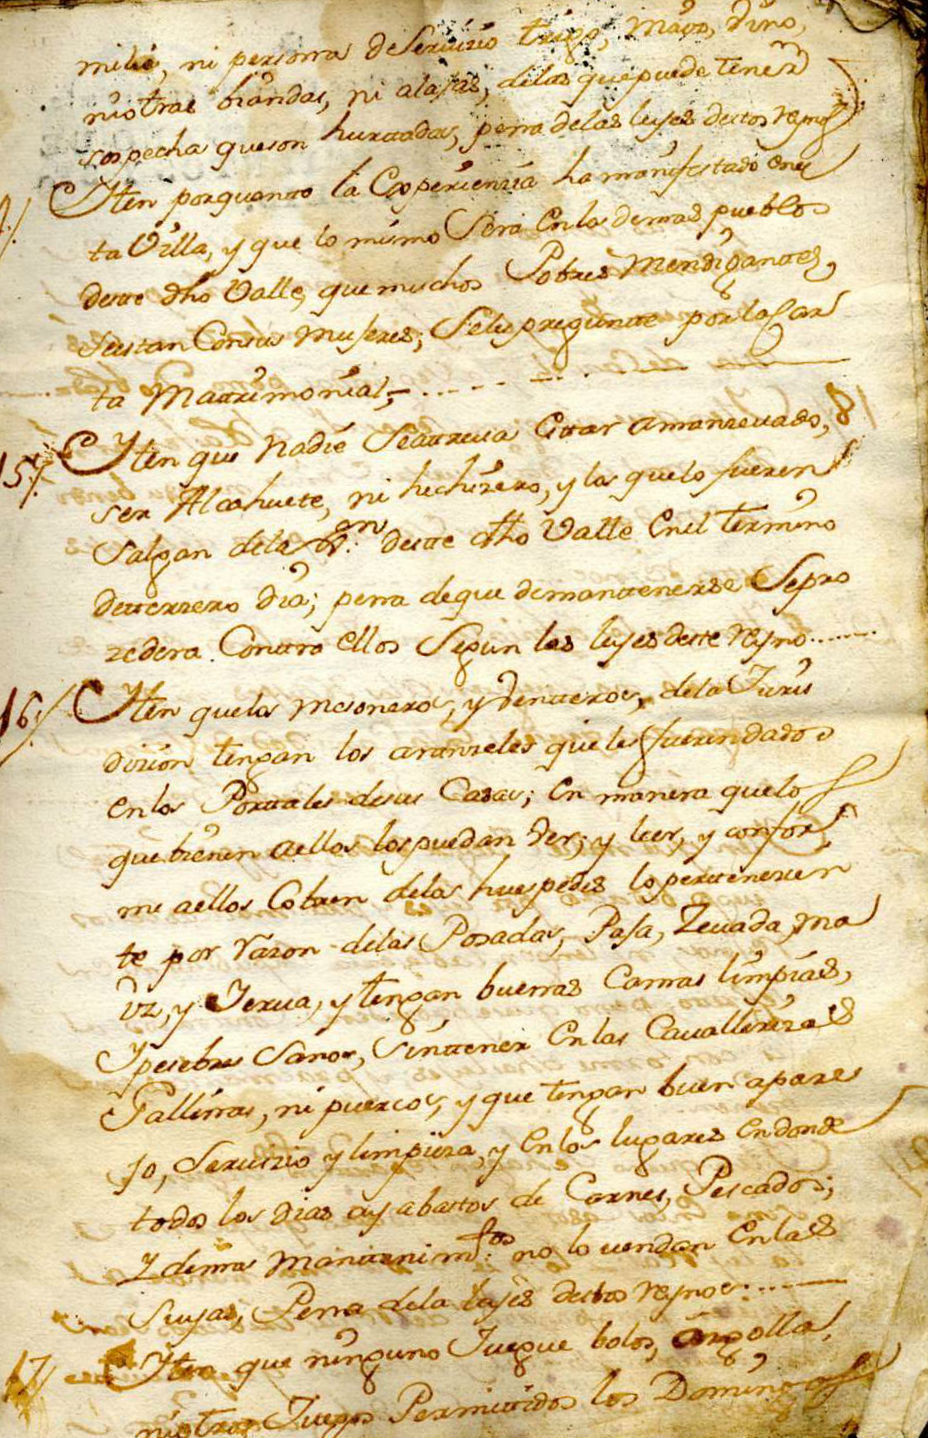 milia, ni persona de Servizio trigo, maiz, dinº,
ni otras biandas, ni alajas, delas que puede tener
sospecha que son hurtadas, pena delas leyes destos reynos
Iten por quanto la Experienzia ha manifestado en es
ta Villa, y que lo mismo Sera En los demas pueblos
deste dho Valle, que muchos Pobres Mendigantes,
Con sus Mujeres; Seles pregunte por la Car
ta Matrimonial,
15 Iten que nadie Se atreva Estar amanzevado,
ser Alcahuete, ni hechizero, y los que lo fueren
Salgan dela deste dho Valle En el termino
de terzero dia; pena de que de mantenerse Sepro
zedera Contra Ellos Segun las leyes deste reyno
16 Iten que los mesoneros, y Venteros, dela Juris
dizion tengan los aranzeles que les fueren dados
en los Portales de sus Casas; En manera que los
que bienen a ellos los puedan Ver, y leer, y confor
me a ellos Cobren delos huespedes lo pertenezien
te por razon delas Posadas, Paja, Zevada, ma
iz, y Yerva, y tengan buenas Camas limpias,
Y pesebres Sanos, Sin tener En las Cavallerizas
Gallinas, ni puercos, y que tengan buen apare
jo, Servizio y limpieza, y En los lugares En donde
todos los dias ay abastos de Carnes, Pescados;
Y demas Mantenimtos no lo vendan En las
Suyas, Pena dela leyes destos reynos.
17 Iten que ninguno Juegue bolos, argolla,
ni otros Juegos Permitidos los Domingos